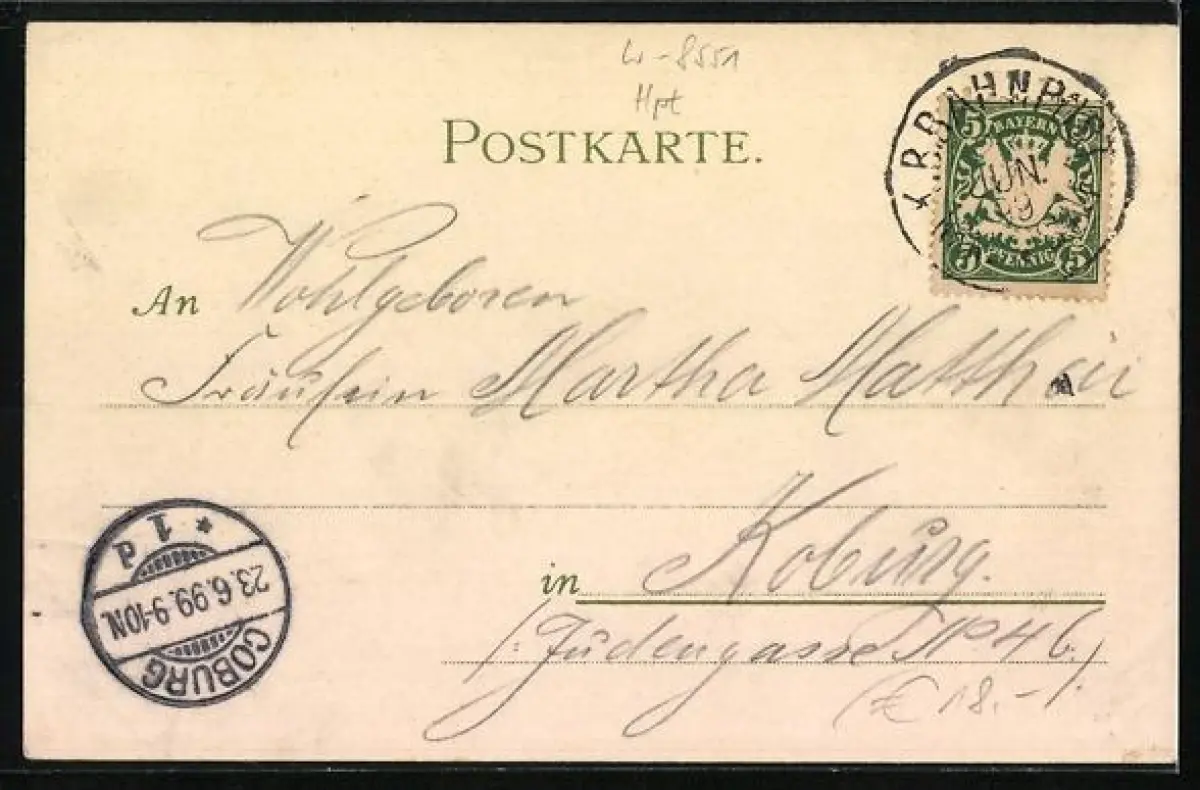 W-8551
Hpt
POSTKARTE.
K.B.BAHNPOST
JUN.
99
5 BAYERN 5
5 PFENNIG 5
An Wohlgeboren
Fräulein Martha Matthäi
in Koburg.
/: Judengasse No 46. :/
(€ 18.-)
* 1 d
23.6.99. 9-10N.
COBURG